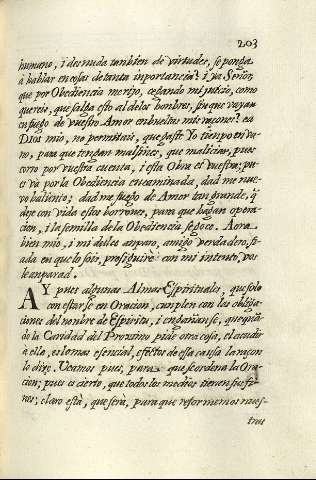 203
humano, i desnuda tanbien de virtudes, se ponga
à hablar en cosas de tanta inportancia? i ya Señor,
que por Obediencia me rijo, cegando mi juicio, como
quereis, que salga esto al de los honbres, sin que vayan
en fuego de vuestro Amor enbueltas mis raçones? ea
Dios mio, no permitais, que gaste Yo tienpo en va-
no, para que tengan malsines, que maliciar, pues
corro por vuestra cuenta, i esta Obra es vuestra; pu-
es và por la Obediencia encaminada, dad me nue-
vo baliento; dad me fuego de Amor tan grande, q̃
dexe con vida estos borrones, para que hagan opera-
cion, i la semilla de la Obediencia se goce. Aora
bien mio, i mi dulce anparo, amigo verdadero, fi-
ada en que lo sois, prosiguirè con mi intento, vos
le anparad.
AY pues algunas Almas Espirituales, que solo
con estarse en Oracion, cunplen con las obliga-
ciones del nonbre de Espiritu, i engañanse, que quã-
do la Caridad del Proximo pide otra cosa, el acudir
à ella, es lo mas esencial, efectos de esta causa la raçon
lo dixe. Veamos pues, para que se ordena la Ora-
cion; pues es cierto, que todos los medios tienen sus fi-
nes; claro està, que serà, para que reformemos nues-
tras